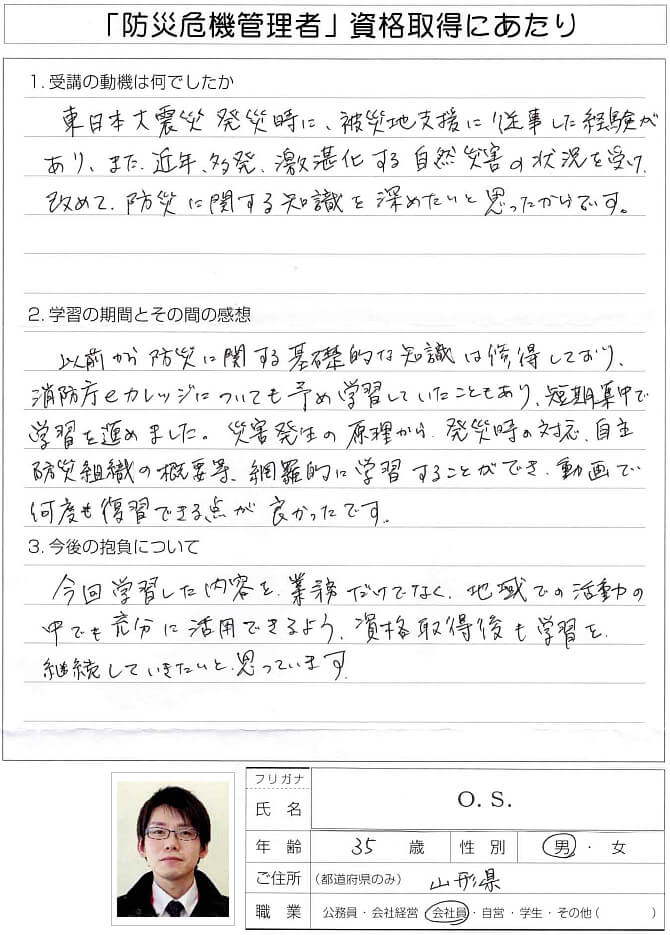 「防災危機管理者」資格取得にあたり
1. 受講の動機は何でしたか
東日本大震災発災時に、被災地支援に従事した経験が
あり、また、近年、多発、激甚化する自然災害の状況を受け、
改めて、防災に関する知識を深めたいと思ったからです。
2. 学習の期間とその間の感想
以前から防災に関する基礎的な知識は修得しており、
消防庁eカレッジについても予め学習していたこともあり、短期集中で
学習を進めました。災害発生の原理から、発災時の対応、自主
防災組織の概要等、網羅的に学習することができ、動画で
何度も復習できる点が良かったです。
3. 今後の抱負について
今回学習した内容を、業務だけでなく、地域での活動の
中でも充分に活用できるよう、資格取得後も学習を
継続していきたいと思っています
フリガナ
氏 名 O. S.
年 齢 35 歳 性 別 男・女
ご住所 (都道府県のみ) 山形県
職 業 公務員・会社経営・会社員・自営・学生・その他( )